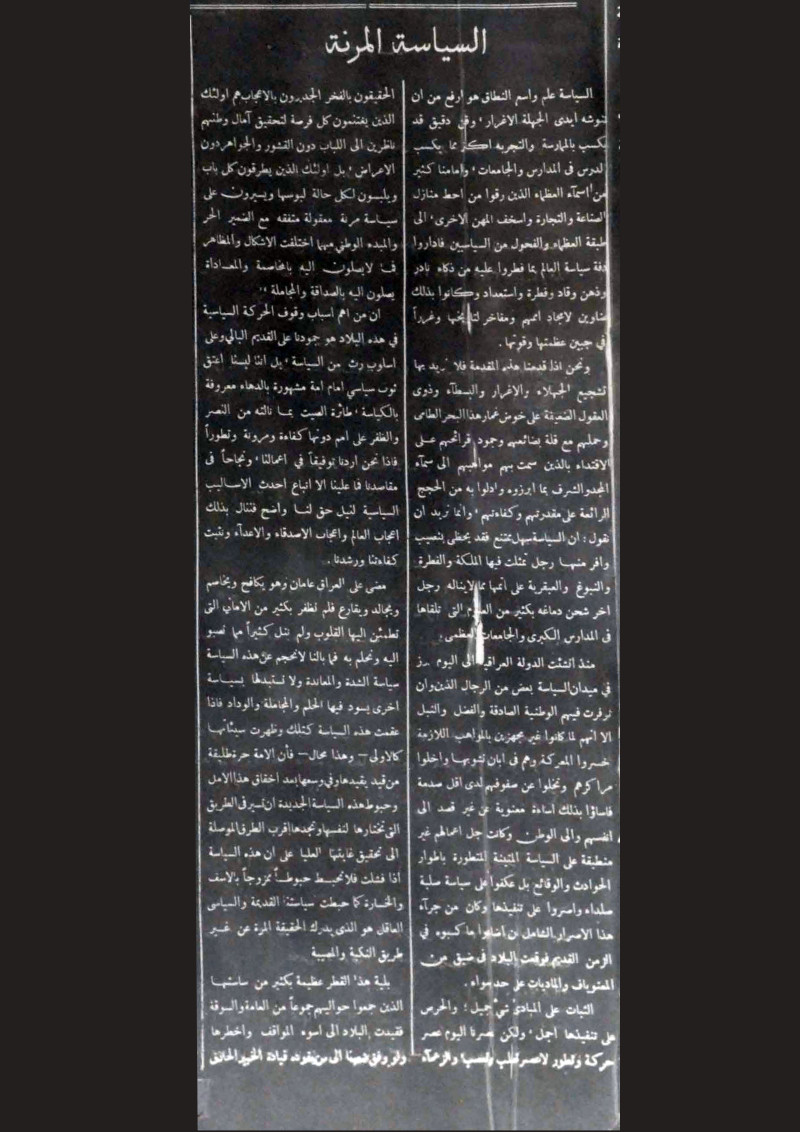 السياسة المرنة
السياسة علم واسع النطاق هو ارفع من ان
تنوشه ايدى الجهلة الاغرار ، وفن دقيق قد
يكسب بالممارسة والتجربة اكثر مما يكسب
الدرس فى المدارس والجامعات ، وامامنا كثير
من اسمآء العظماء الذين رقوا من احط منازل
الصناعة والتجارة واسخف المهن الاخرى ، الى
طبقة العظماء والفحول من السياسيين فاداروا
دفة سياسة العالم بما فطروا عليه من ذكاء نادر
وذهن وقاد وفطرة واستعداد وكانوا بذلك
عناوين لامجاد اممهم ومفاخر لتاريخها وغرراً
في جبين عظمتها وقوتها .
ونحن اذا قدمنا هذه المقدمة فلا نريد بها
تشجيع الجهلاء والاغرار والبسطآء وذوى
العقول الضعيفة على خوض غمار هذا البحر الطامى
وحملهم مع قلة بضائعهم وجمود قرائحهم على
الاقتداء بالذين سمت بهم مواهبهم الى سمآء
المجد والشرف بما ابرزوه وادلوا به من الحجج
الرائعة على مقدرتهم وكفاءتهم ، وانما نريد ان
نقول : ان السياسة سهل ممتنع فقد يحظى بنصيب
وافر منهـا رجل تمثلت فيها الملكة والفطرة
والنبوغ والعبقرية على أتمها مما لا يناله رجل
اخر شحن دماغه بكثير من العلوم التى تلقاها
فى المدارس الكبرى والجامعات العظمى .
منذ انشئت الدولة العراقية الى اليوم برز
في ميدان السياسة بعض من الرجال الذين وان
توفرت فيهم الوطنية الصادقة والفضل والنبل
الا انهم لما كانوا غير مجهزين بالمواهب اللازمة
خسروا المعركة وهم فى ابان نشوبها واخلوا
مراكزهم وتخلوا عن صفوفهم لدى اقل صدمة
فاساؤا بذلك اساءة معنوية عن غير قصد الى
انفسهم والى الوطن وكانت جل اعمالهم غير
منطبقة على السياسة المتبنة المتطورة باطوار
الحوادث والوقائع بل عكفوا على سياسة صلبة
صلداء واصروا على تنفيذها وكان من جرآء
هذا الاصرار الشامل ان اضاعوا ما كسبوه في
الزمن القديم فوقعت البلاد فى ضيق من
المعنويات والماديات على حد سواء .
الثبات على المبادئ شيء جميل ، والحرص
على تنفيذها اجمل ، ولكن عصرنا اليوم عصر
حركة وتطور لا عصر والزعمآء
الحقيقون بالفخر الجديرون بالاعجاب هم اولئك
الذين يغتنمون كل فرصة لتحقيق آمال وطنهم
ناظرين الى اللباب دون القشور والجواهر دون
الاعراض ، بل اولئك الذين يطرقون كل باب
ويلبسون لكل حالة لبوسها ويسيرون على
سياسة مرنة معقولة متفقه مع الضمير الحر
والمبدء الوطني مهما اختلفت الاشكال والمظاهر
فما لا يصلون اليه بالمخاصمة والمعاداة
يصلون اليه بالصداقة والمجاملة ،،
ان من اهم اسباب وقوف الحركة السياسية
في هذه البلاد هو جمودنا على القديم البالي وعلى
اسلوب رث من السياسة ، بل اننا لبسنا اعتق
ثوب سياسي امام امة مشهورة بالدهاء معروفة
بالكياسة ، طائرة الصيت بمـا نالته من النصر
والظفر على امم دونها كفاءة ومرونة وتطوراً
فاذا نحن اردنا توفيقاً في اعمالنا ، ونجاحاً فى
مقاصدنا فما علينا الا اتباع احدث الاساليب
السياسية لنيل حق لنـا واضح فننال بذلك
اعجاب العالم واعجاب الاصدقاء والاعدآء ونثبت
كفاءتنا ورشدنا .
مضى على العراق عامان وهو يكافح ويخاصم
ويجالد ويقارع فلم نظفر بكثير من الاماني التى
تطمئن اليها القلوب ولم ننل كثيراً مما نصبو
اليه ونحلم به فما بالنا لا نحجم عن هذه السياسة
سياسة الشدة والمعاندة ولا نستبدلها بسياسة
اخرى يسود فيها الحلم والمجاملة والوداد فاذا
عقمت هذه السياسة كتلك وظهرت سيئآتهـا
كالاولى — وهذا محال — فأن الامة حرة طليقة
من قيد يقيدها وفي وسعها بعد اخفاق هذا الامل
وحبوط هذه السياسة الجديدة ان تسير فى الطريق
التى تختارها لنفسها وتجدها اقرب الطرق الموصلة
الى تحقيق غايتها العليا على ان هذه السياسة
اذا فشلت فلا تحبط حبوطـاً ممزوجاً بالاسف
والخسارة كما حبطت سياستنا القديمة والسياسى
العاقل هو الذى يدرك الحقيقة المرة عن غير
طريق النكبة والمصيبة
بلية هذا القطر عظيمة بكثير من ساستهـا
الذين جمعوا حواليهم جموعاً من العامة والسوقة
فقيدت البلاد الى اسوء المواقف واخطرها
ولو وفق شعبنا الى من يقوده قيادة الخبير الحاذق